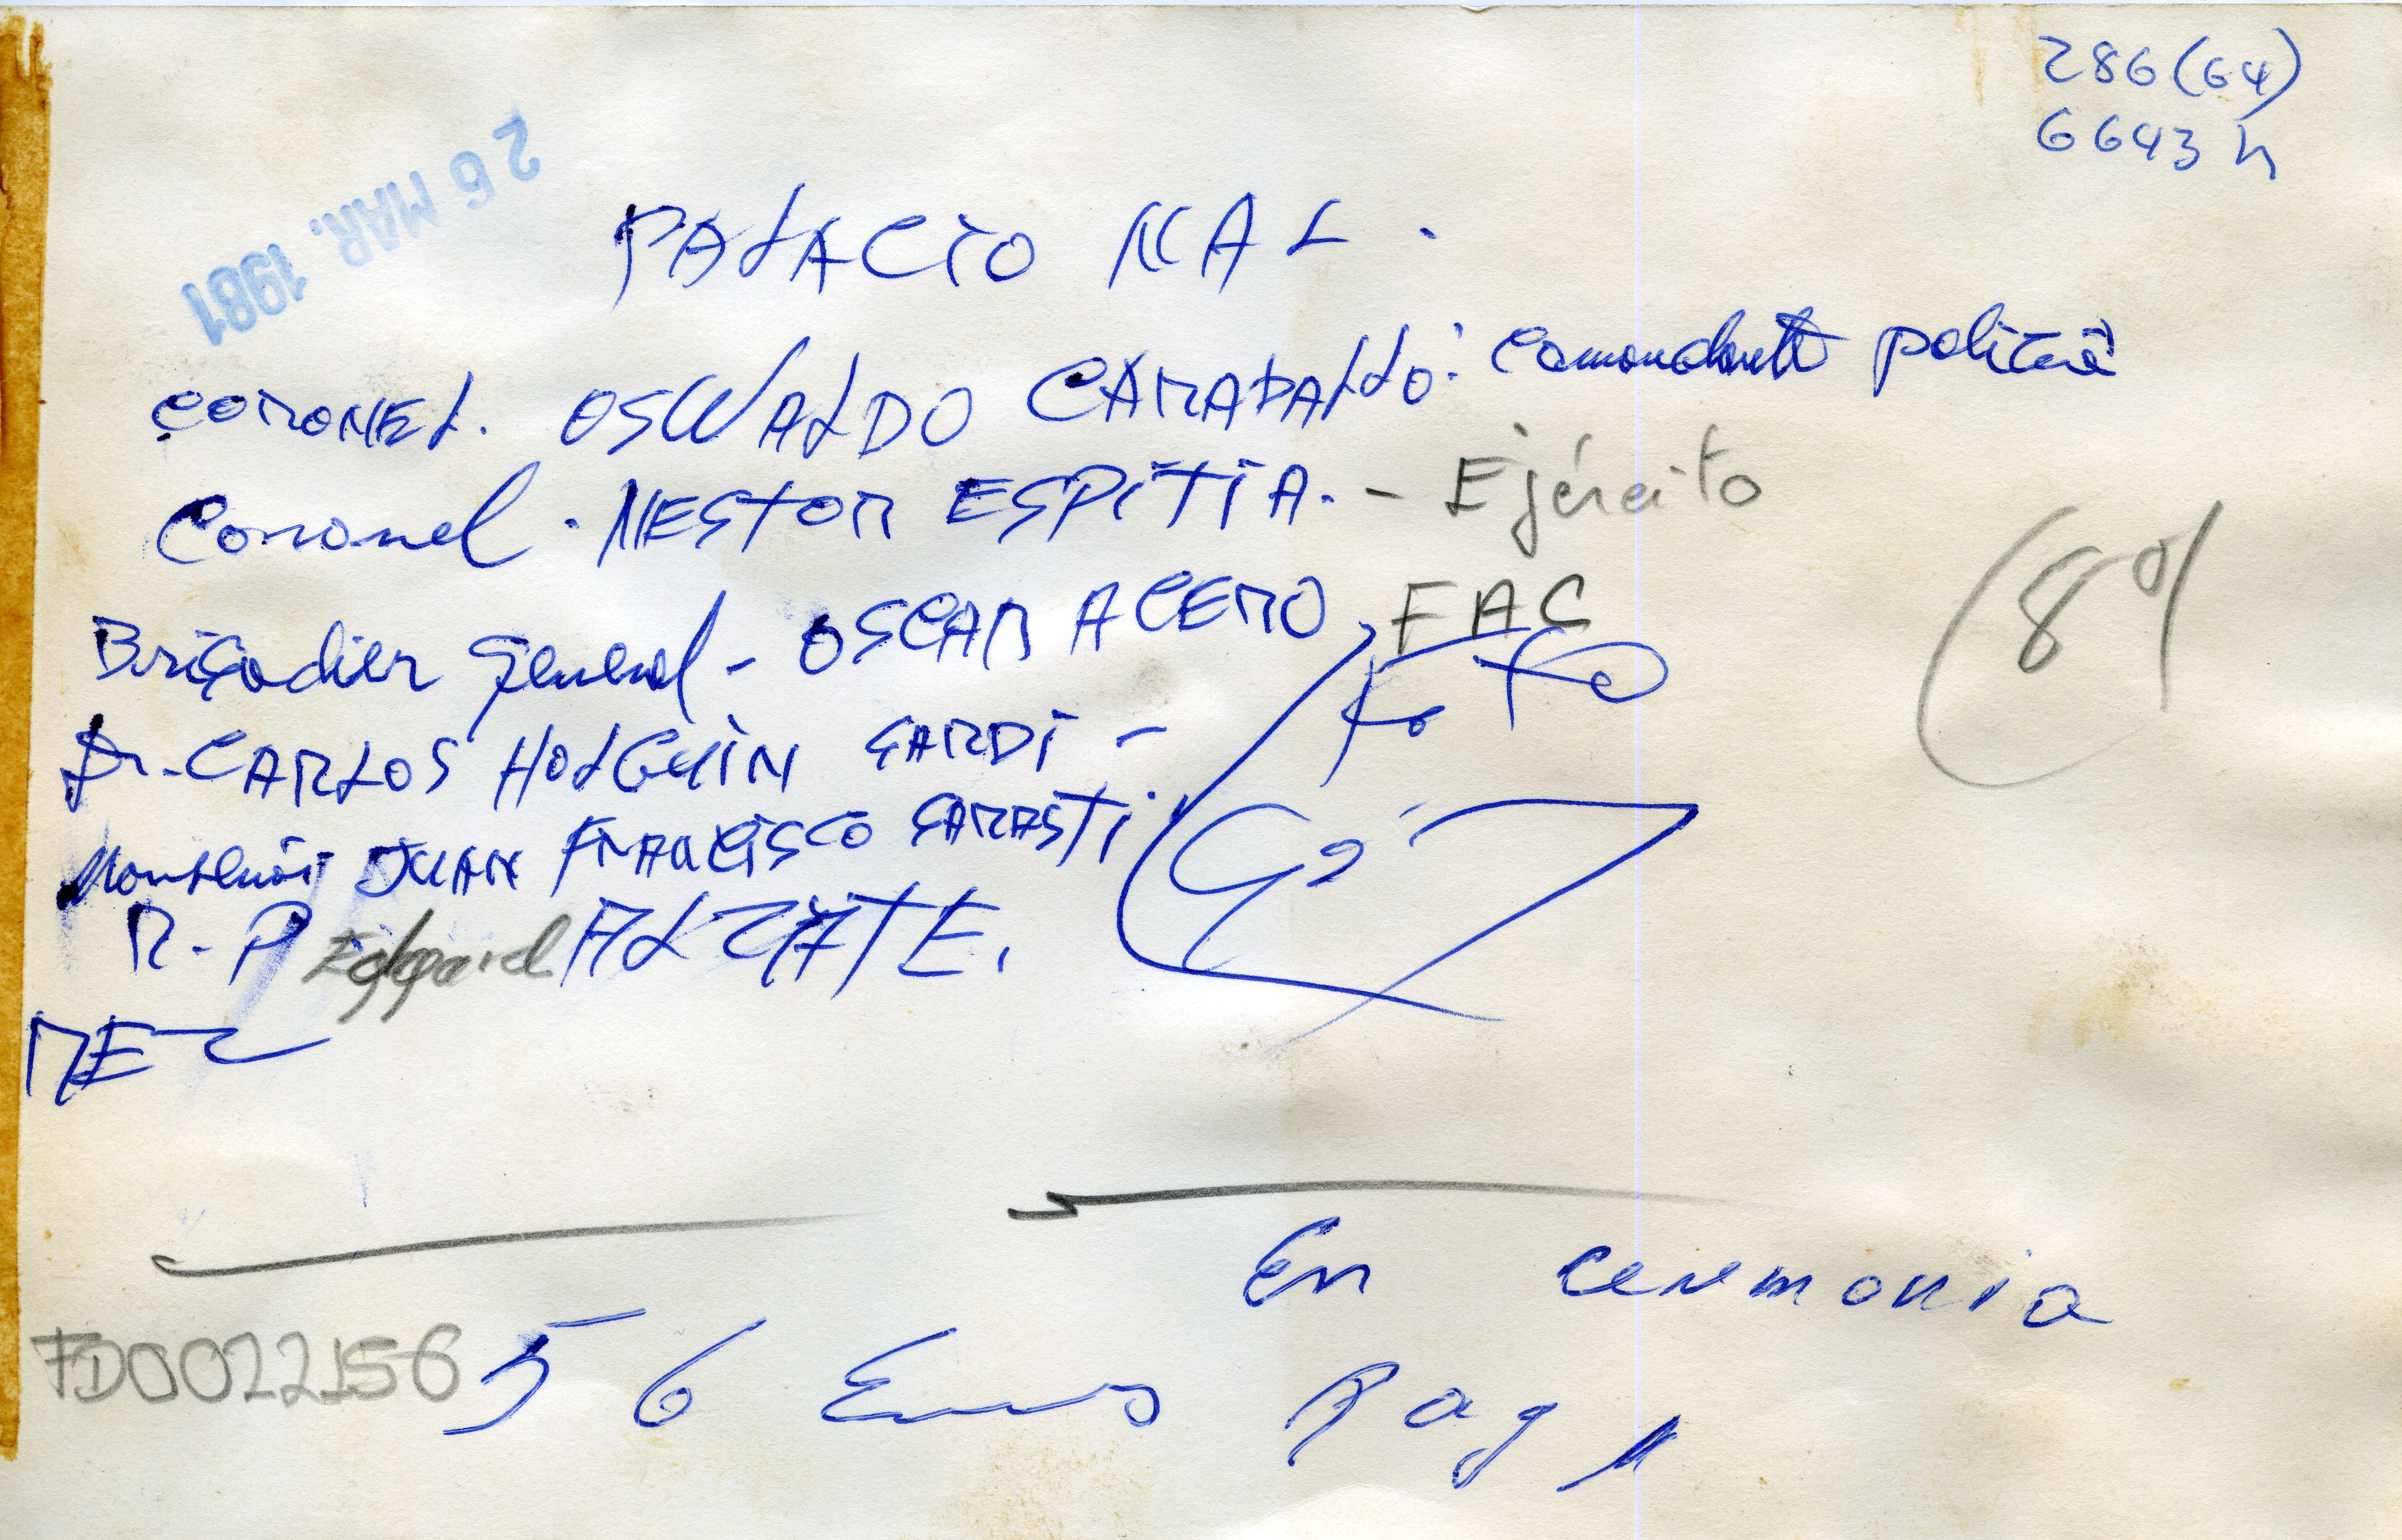 286(64)
6643 h
26 MAR. 1981
PALACIO NAL.
CORONEL. OSWALDO CARABALLO: Comandante policia
Coronel. NESTOR ESPITIA. - Ejército
Brigadier General - OSCAR ACERO, FAC
Dr. CARLOS HOLGUIN SARDI -
Monseñor JUAN FRANCISCO SARASTI.
R.P Edgard ALZATE.
Foto
8º/
En ceremonia
FD0022156
56 Ems Pag